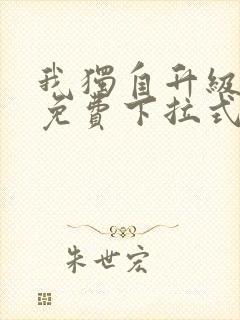 我獨自升級
免費下拉式
朱世宏